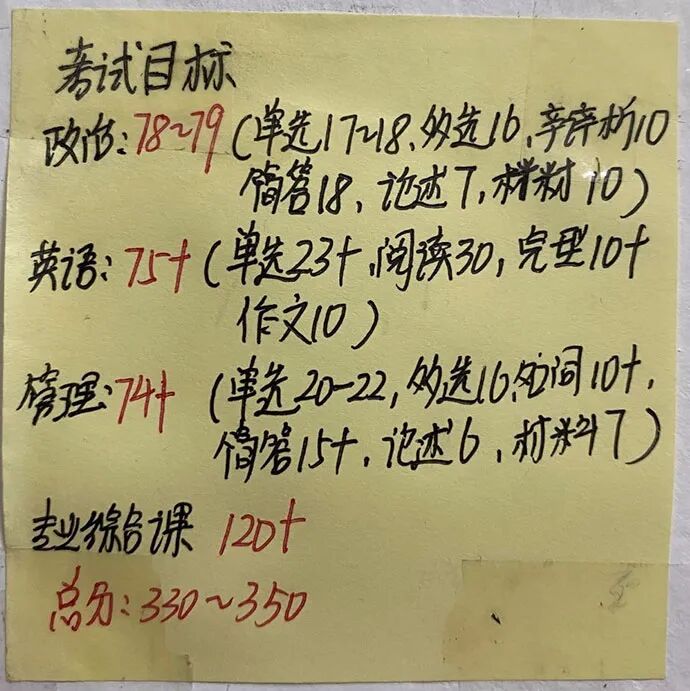 考试目标
政治：78~79（单选17~18、多选16、辛辨析10
简答18，论述7，材料10）
英语：75+（单选23+，阅读30，完型10+
作文10）
管理：74+（单选20-22，多选16，填空10+，
简答15+，论述6，材料7）
专业综合课 120+
总分：330~350